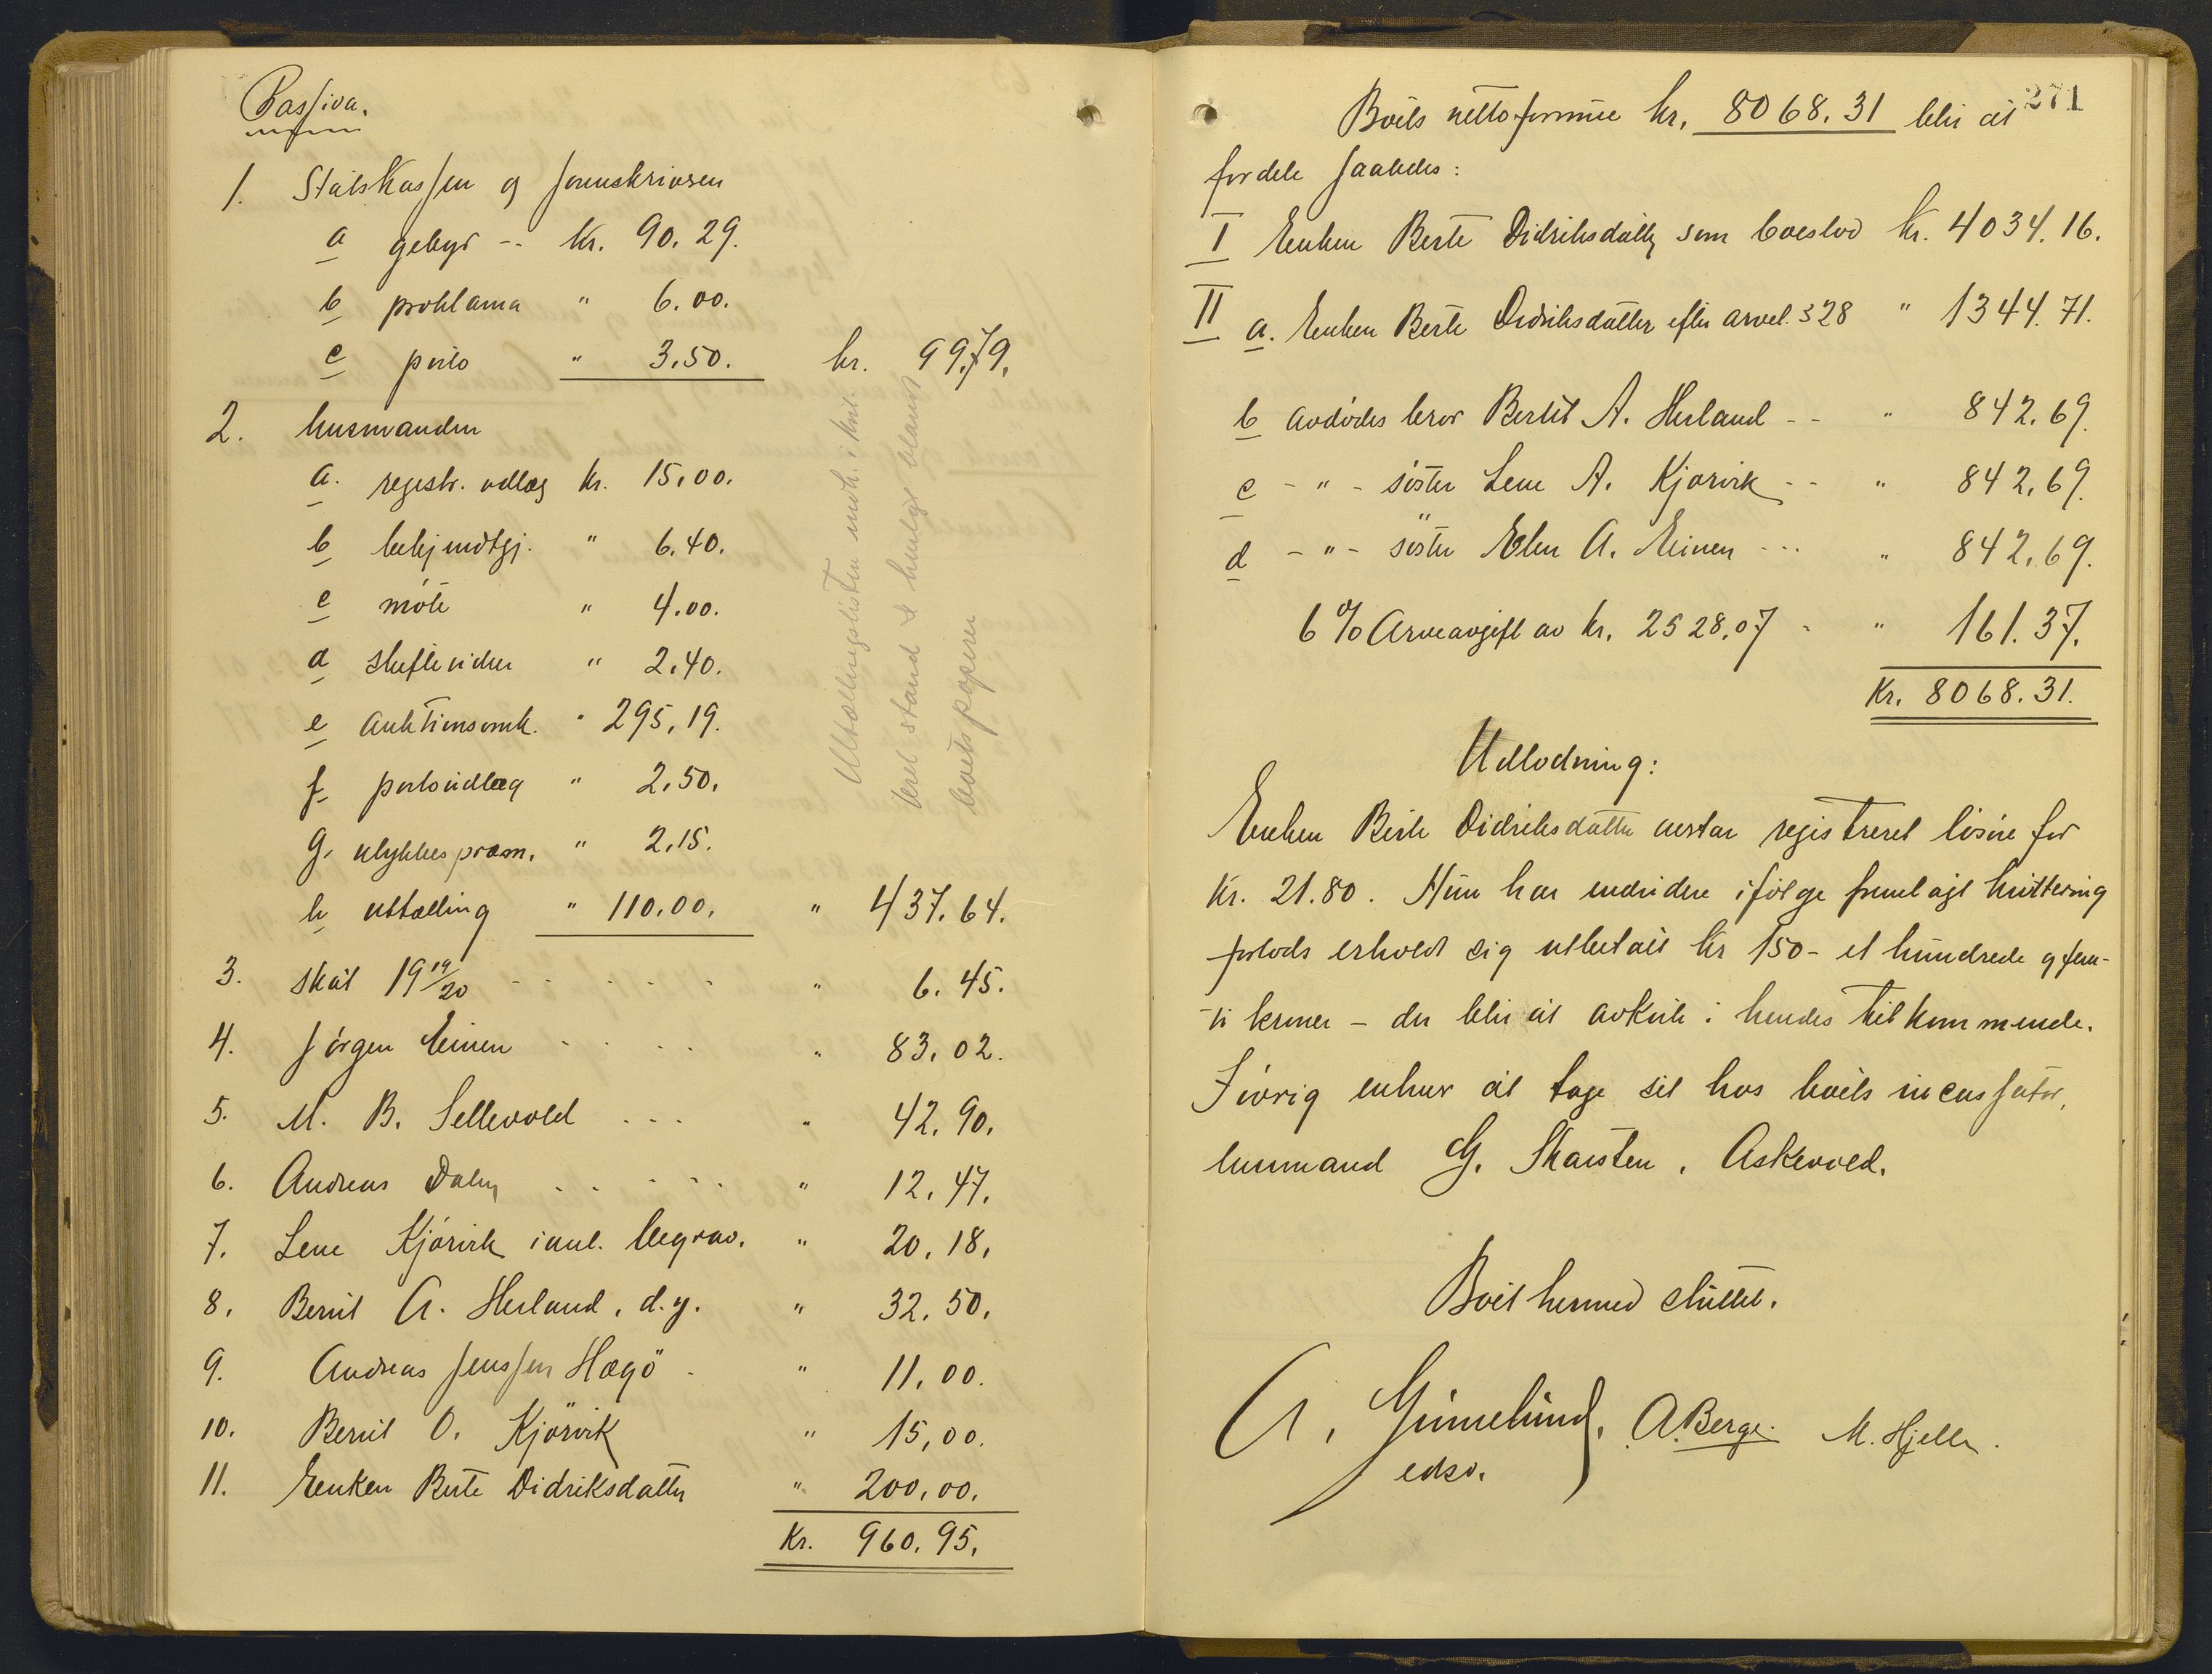 Passiva.
1. Statskassen og sorenskriveren
a gebyr -- kr. 90.29.
b proklama " 6.00.
c porto " 3.50. kr. 99.79.
2. lensmanden
a. registr. utlæg kr. 15.00.
b bekjendtgj. " 6.40.
c møte " 4.00.
d skiftevidner " 2.40.
e auktionsomk. " 295.19.
f portoutlæg " 2.50.
g. ulykkespræm. " 2.15.
h uttælling " 110.00. " 437.64.
3. Skat 19 19/20 - - - - - " 6.45.
4. Jörgen Einen - - - - " 83.02.
5. M. B. Sellevold - - - " 42.90.
6. Andreas Dalen - - - - - " 12.47.
7. Lene Kjörvik i anl. begrav. " 20.18.
8. Bernt A. Herland, d. y. " 32.50.
9. Andreas Jenssen Hægö - " 11.00.
10. Bernt O. Kjörvik " 15.00.
11. Enken Berte Didriksdatter " 200.00.
Kr. 960.95.
Uttællingslisten
boets papirer
271
Boets nettoformue kr. 8068.31 blir at
fordele saaledes:
I Enken Berte Didriksdatter som boeslod Kr. 4034.16.
II a. Enken Berte Didriksdatter efter arvel. § 28 " 1344.71.
b avdødes bror Bertil A. Herland - - " 842.69.
c - " - söster Lene A. Kjørvik - - " 842.69.
d - " - söster Elen A. Einen - - - " 842.69.
6 % Arveavgift av kr. 2528.07 - " 161.37.
Kr. 8068.31.
Utlodning:
Enken Berte Didriksdatter registreret løsøre for
Kr. 21.80. Hun har endvidere ifølge fremlagt kvittering
forlods erholdt sig utbetalt kr 150 - et hundrede og fem-
ti kroner - der blir at avkorte i hendes tilkommende.
Iøvrig enhver at tage sit hos boets incassator,
lensmand G. Skarsten, Askevold.
Boet hermed sluttet.
A. Grimelund, A. Berge. M. Hjelle.
edsv.